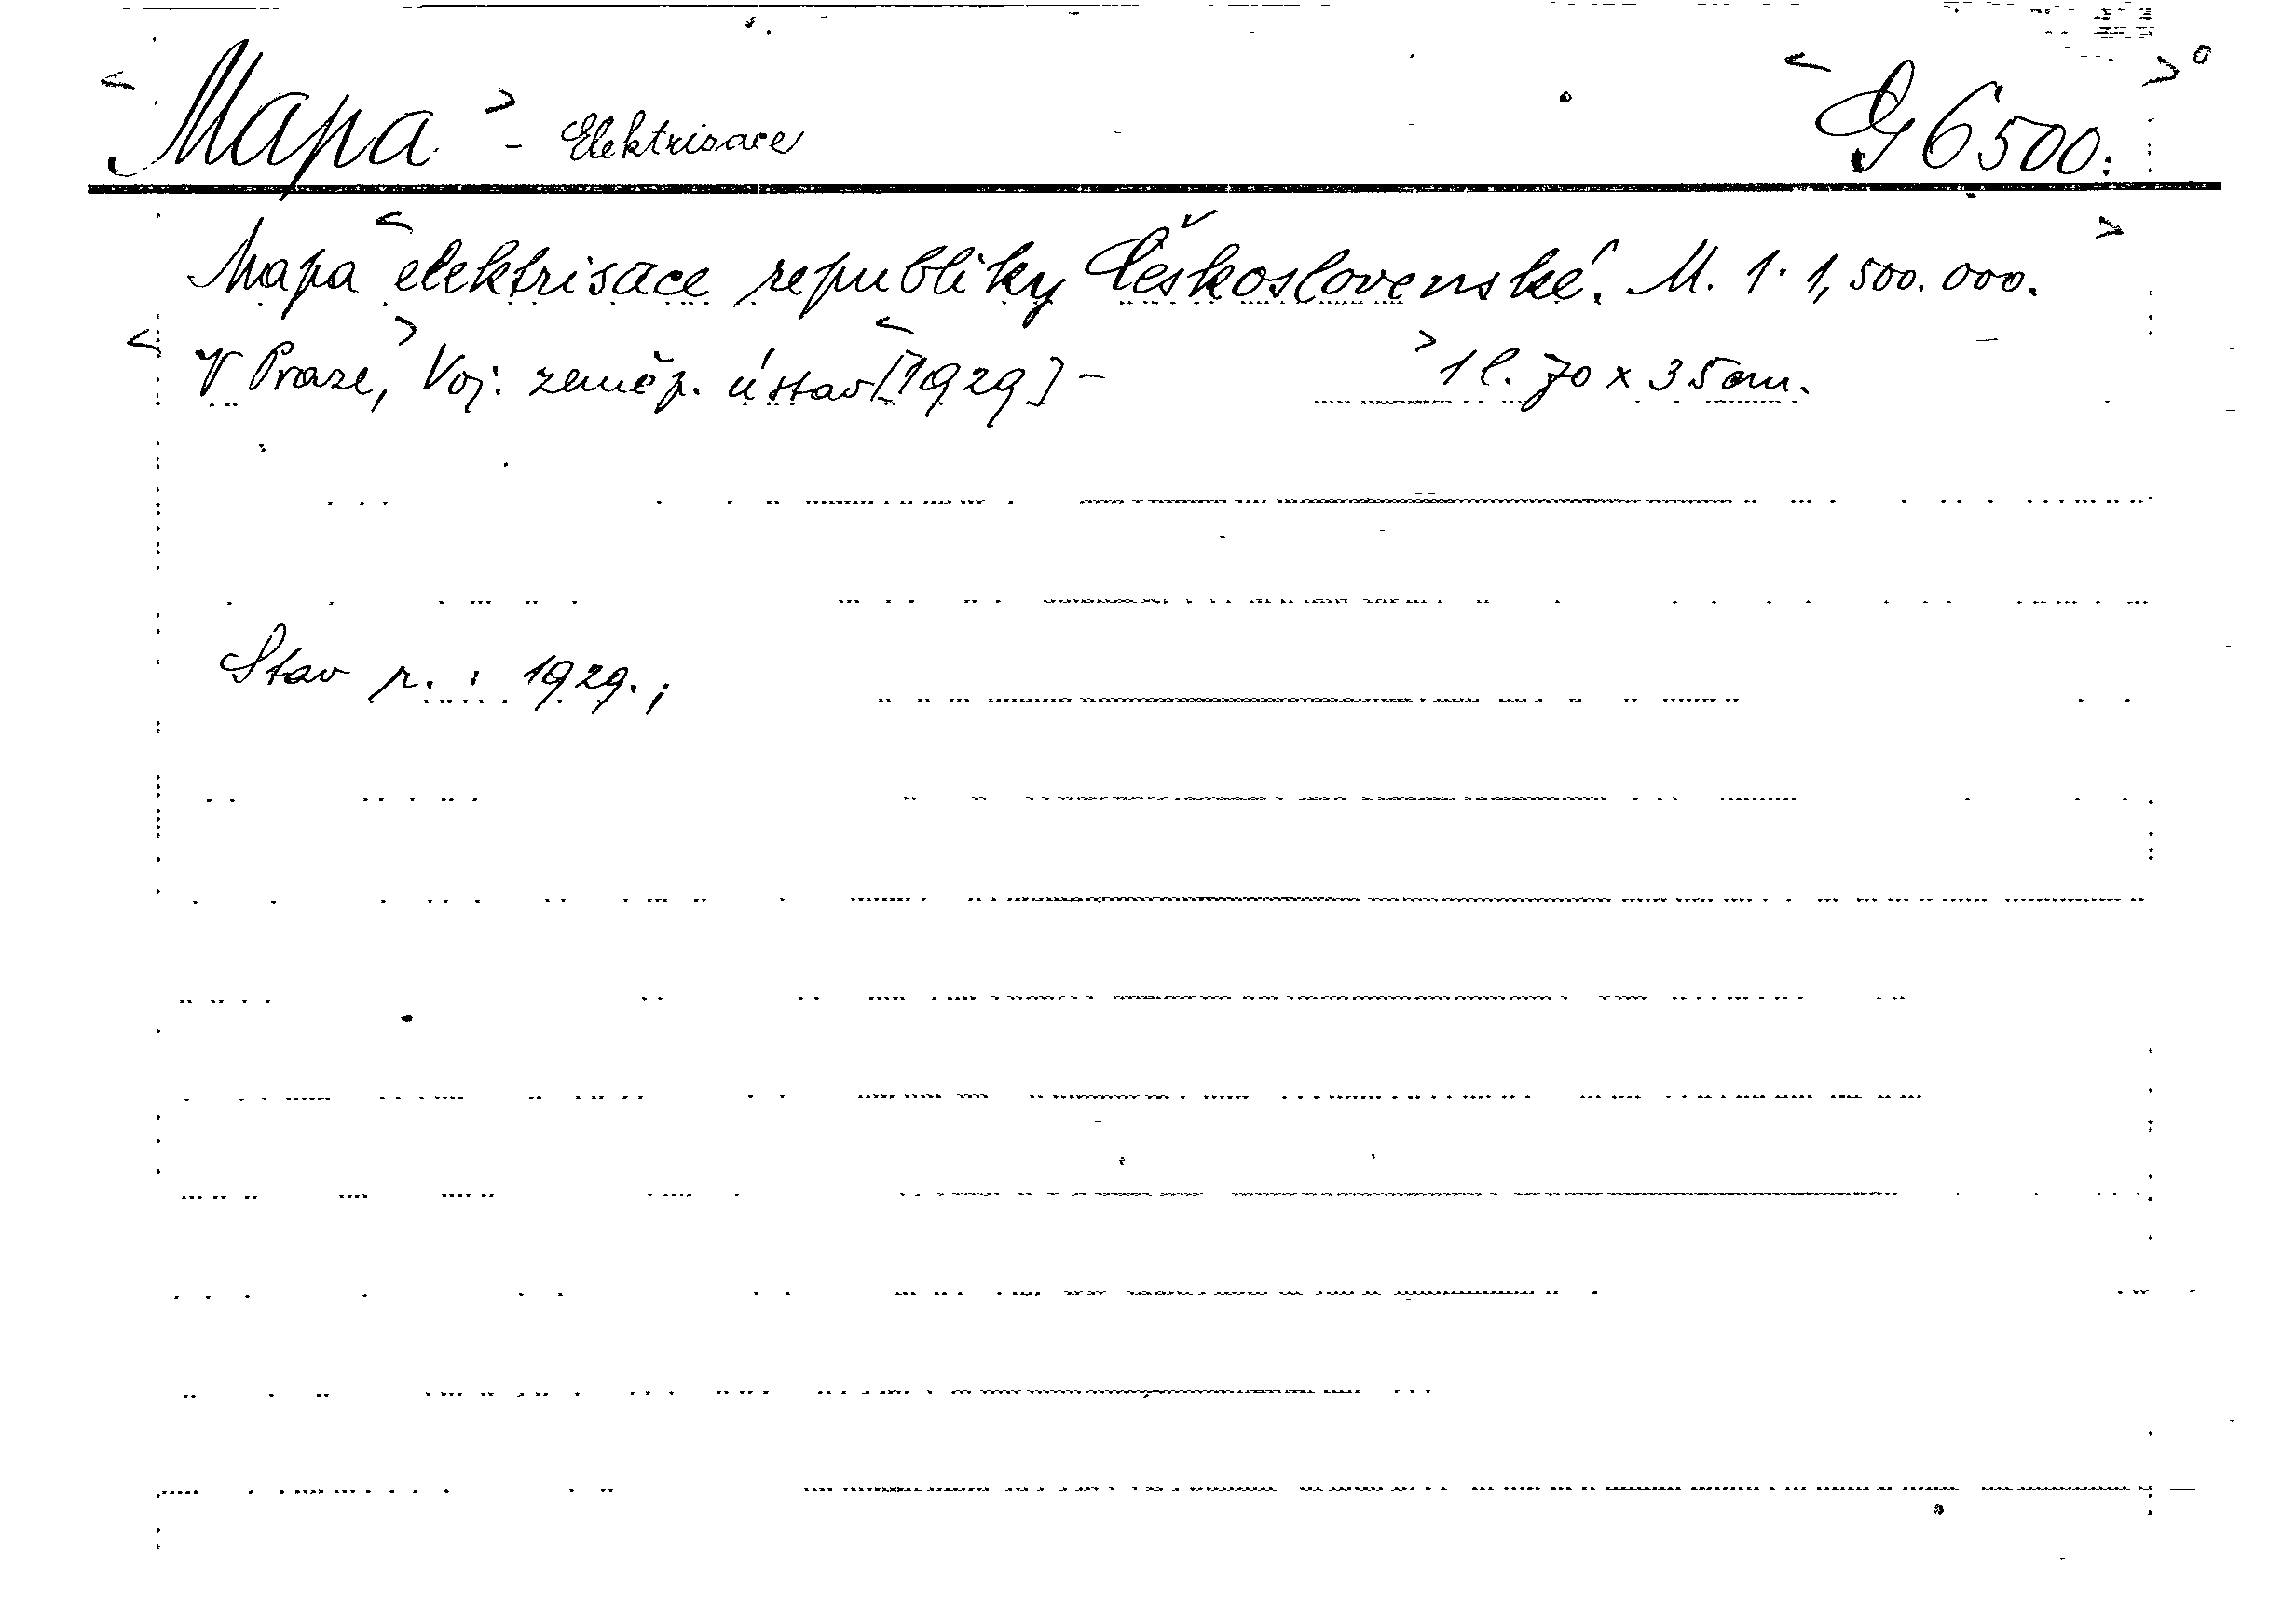 <Mapa> - Elektrisace <G 6500.>
Mapa <elektrisace republiky Československé. M. 1:1,500.000.>
<V Praze,> Voj. zeměp. ústav <[1929] - >1 l. 70 x 35 cm.
Stav r.: 1929.;